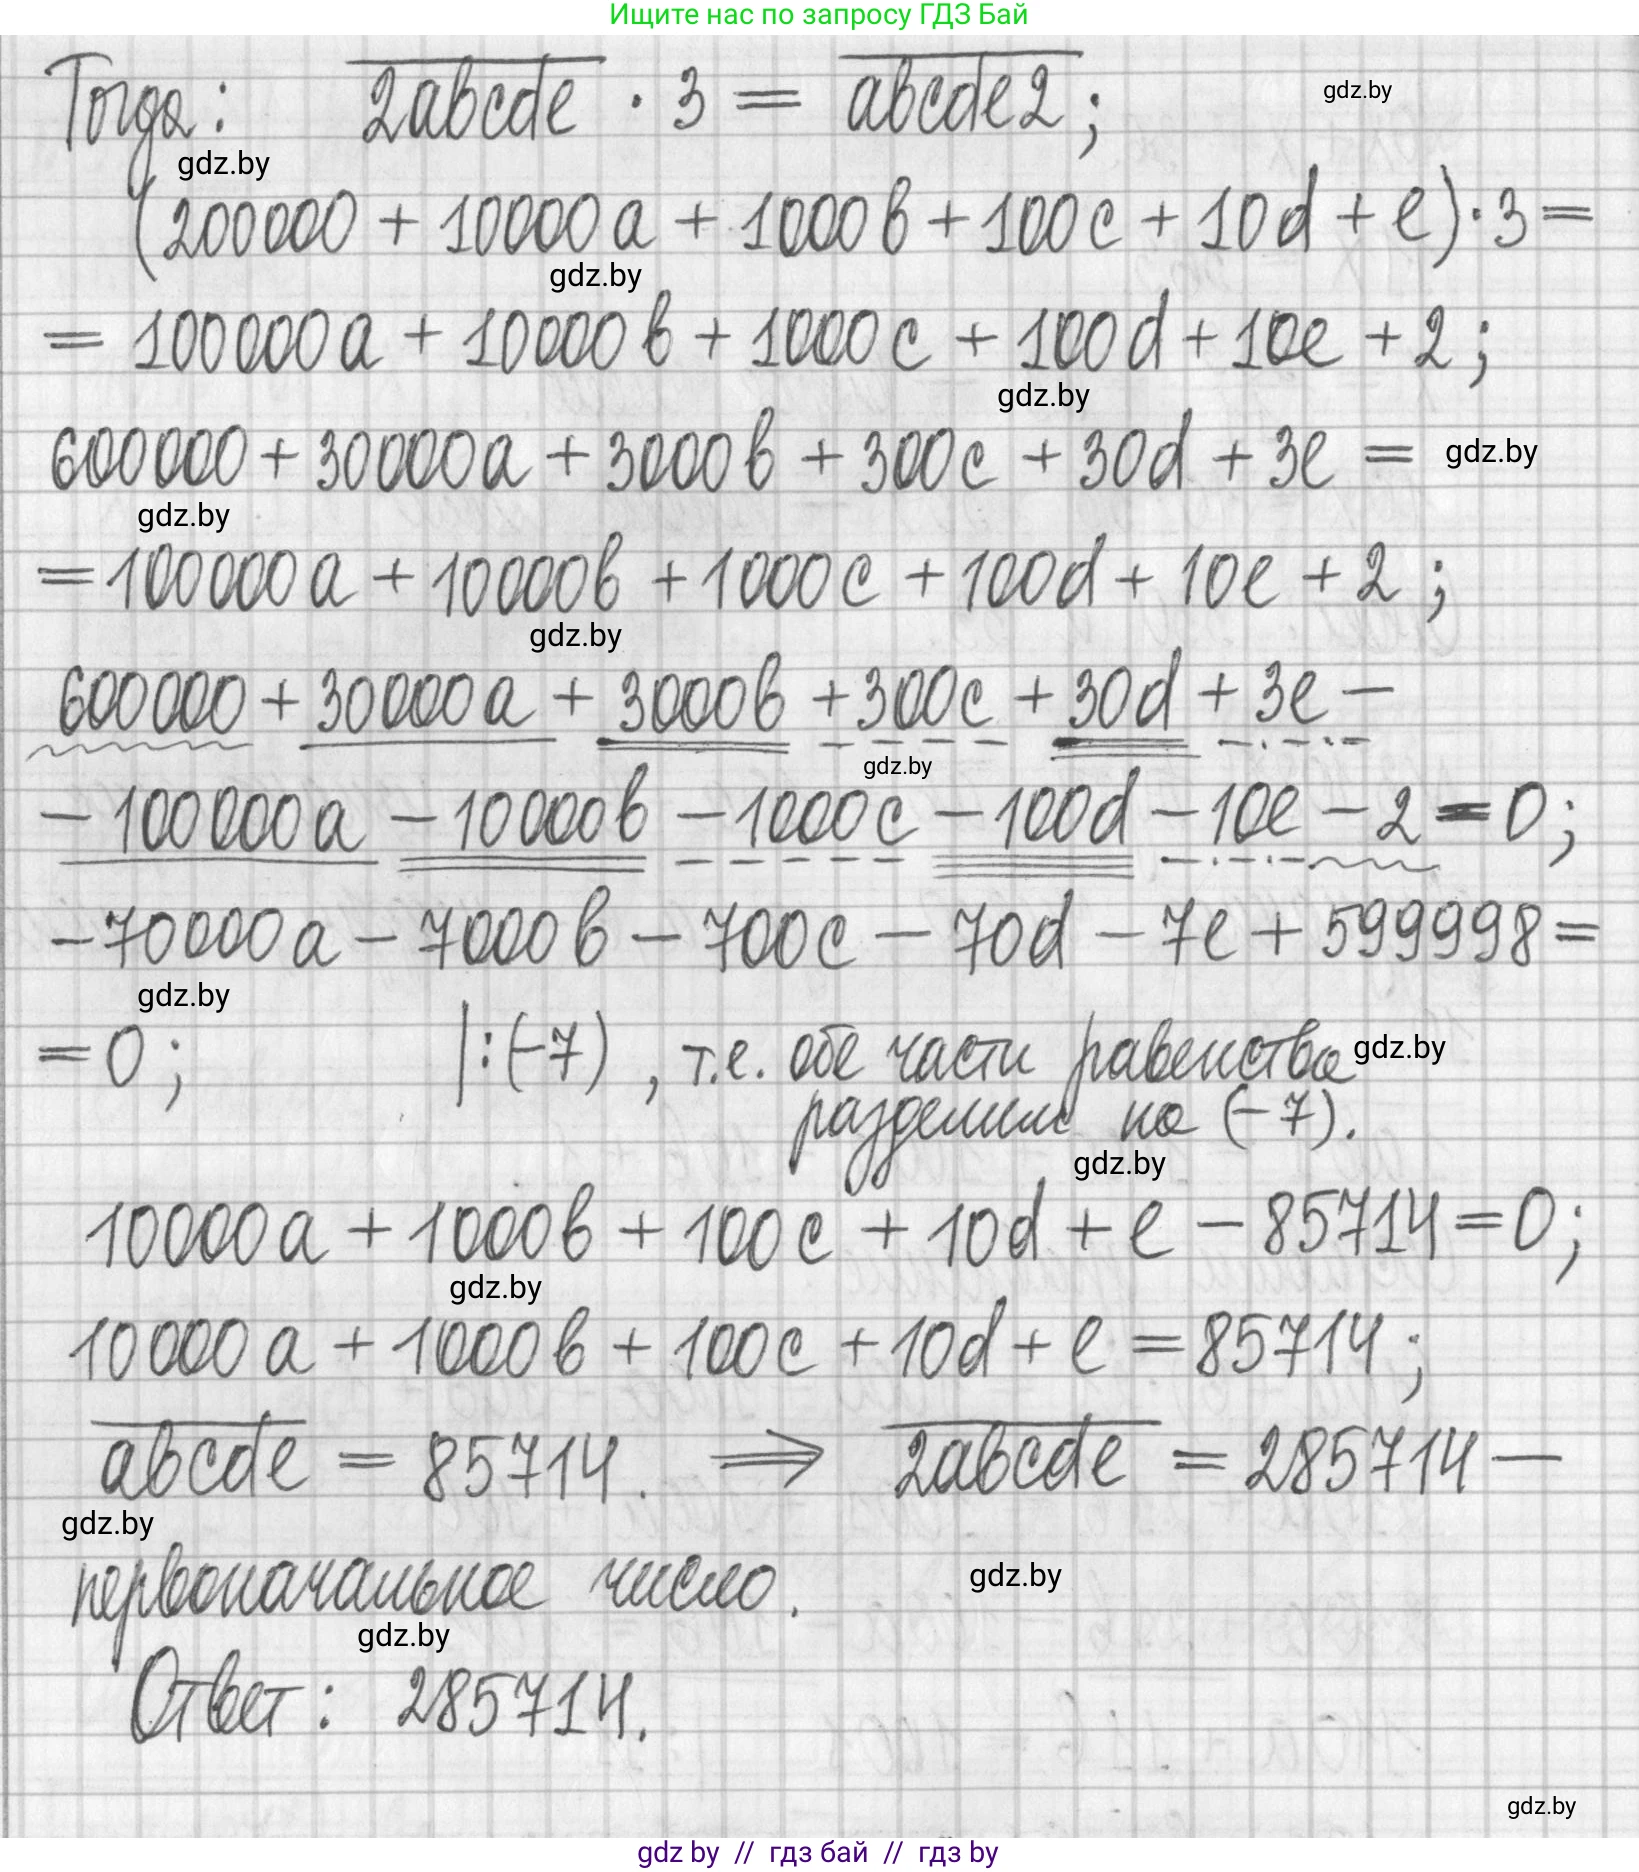 Ищите нас по запросу ГДЗ Бай
Тогда: 2abcde · 3 = abcde2;
gdz.by
gdz.by
(200000 + 10000a + 1000b + 100c + 10d + e)·3=
gdz.by
= 100000a + 10000b + 1000c + 100d + 10e + 2;
gdz.by
600000 + 30000a + 3000b + 300c + 30d + 3e =
gdz.by
gdz.by
= 100000a + 10000b + 1000c + 100d + 10e + 2;
gdz.by
600000 + 30000a + 3000b + 300c + 30d + 3e −
gdz.by
− 100000a − 10000b − 1000c − 100d − 10e − 2 = 0;
−70000a − 7000b − 700c − 70d − 7e + 599998 =
gdz.by
= 0; |:(−7), т.е. обе части равенства
gdz.by
разделим на (−7).
gdz.by
10000a + 1000b + 100c + 10d + e − 85714 = 0;
gdz.by
10000a + 1000b + 100c + 10d + e = 85714;
abcde = 85714. ⟹ 2abcde = 285714 —
gdz.by
первоначальное число.
gdz.by
gdz.by
Ответ: 285714.
gdz.by
gdz by // гдз бай // гдз by